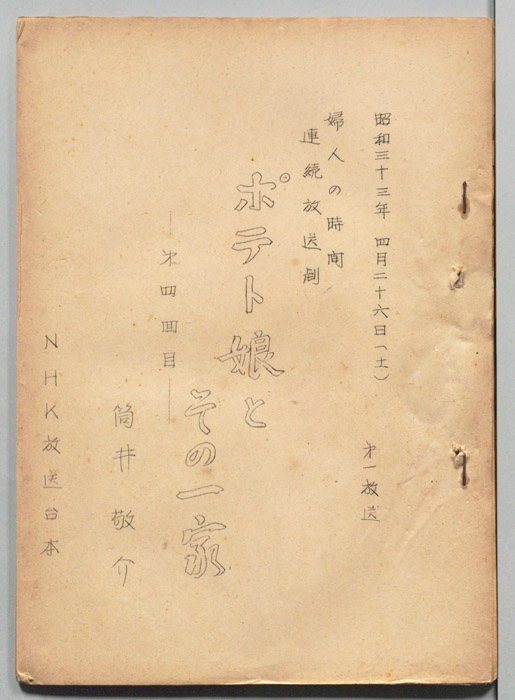 昭和三十三年 四月二十六日(土) 才一放送
婦人の時間
連続放送劇
ポテト娘と
その一家
―才四回目―
筒井敬介
NHK放送台本